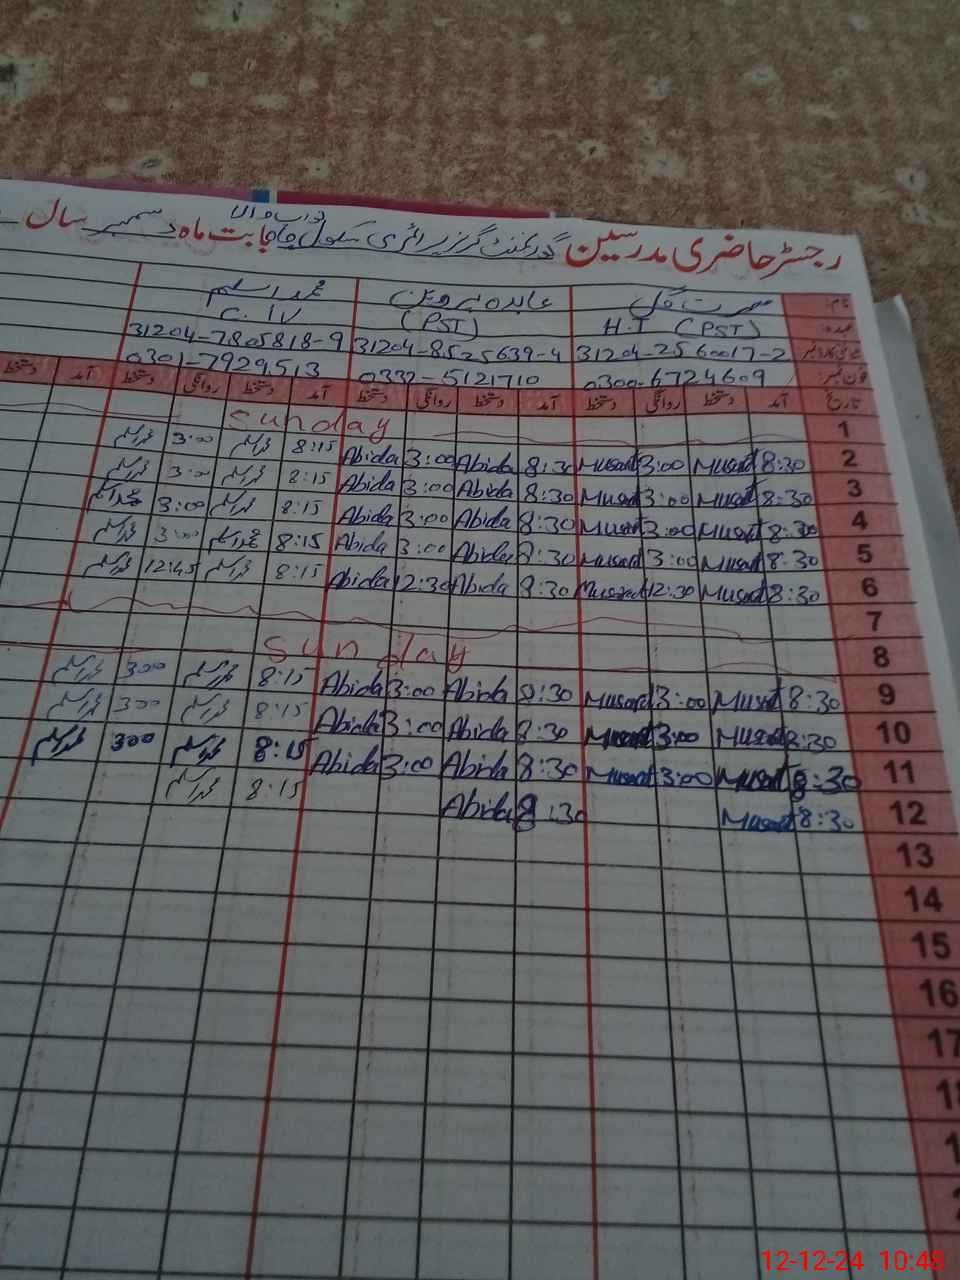 رجسٹر حاضری مدرسین گورنمنٹ گرلز پرائمری سکول بابت ماہ دسمبر سال
نام: مسرت گل عابدہ پروین محمد اسلم
عہدہ: H.T (PST) (PST) C.IV
شناختی کارڈ نمبر 31204-2560017-2 31204-8525639-4 31204-7805818-9
فون نمبر: 0300-6724609 0332-5121710 0301-7929513
تاریخ آمد دستخط روانگی دستخط آمد دستخط روانگی دستخط آمد دستخط روانگی دستخط آمد دستخط
1 Sunday
2 8:30 Musarat 3:00 Musarat 8:30 Abida 3:00 Abida 8:15 محمد اسلم 3:00 محمد اسلم
3 8:30 Musarat 3:00 Musarat 8:30 Abida 3:00 Abida 8:15 محمد اسلم 3:00 محمد اسلم
4 8:30 Musarat 3:00 Musarat 8:30 Abida 3:00 Abida 8:15 محمد اسلم 3:00 محمد اسلم
5 8:30 Musarat 3:00 Musarat 8:30 Abida 3:00 Abida 8:15 محمد اسلم 3:00 محمد اسلم
6 8:30 Musarat 12:30 Musarat 8:30 Abida 12:30 Abida 8:15 محمد اسلم 12:45 محمد اسلم
7
8 Sunday
9 8:30 Musarat 3:00 Musarat 8:30 Abida 3:00 Abida 8:15 محمد اسلم 300 محمد اسلم
10 8:30 Musarat 3:00 Musarat 8:30 Abida 3:00 Abida 8:15 محمد اسلم 300 محمد اسلم
11 8:30 Musarat 3:00 Musarat 8:30 Abida 3:00 Abida 8:15 محمد اسلم 300 محمد اسلم
12 8:30 Musarat 8:30 Abida 8:15 محمد اسلم
13
14
15
16
17
12-12-24 10:48